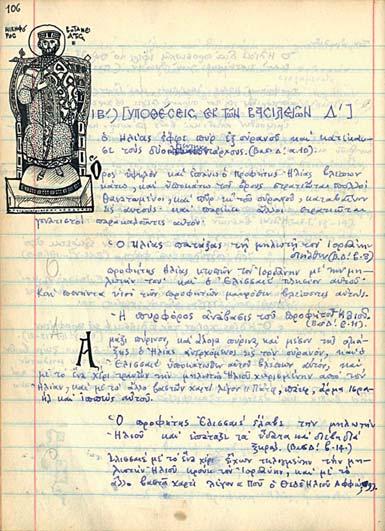 106
ΝΙΚΗΦΟ
ΡΟΣ
ΒΟΤΑΝΕΙ
ΑΤΗΣ
ΙΒ') [ΥΠΟΘΕΣΕΙΣ ΕΚ ΤΩΝ ΒΑΣΙΛΕΙΩΝ Δ']
ὁ Ἠλίας ἔφερε πῦρ ἐξ οὐρανοῦ καὶ κατέκαυ-
σε τοὺς δύο πεντηκοντάρχους. (Βασ. Δ' α. 10).
Ὄρος ὑψηλὸν καὶ ἐπάνω ὁ Προφήτης Ἠλίας
καὶ ὑποκάτω τοῦ ὄρους στρατιῶται πολλοὶ
θανατωμένοι, καὶ πῦρ ἐκ τοῦ οὐρανοῦ,
αὐτούς· καὶ ἄλλοι στρατιῶται
γονατιστοὶ παρακαλοῦντες αὐτόν.
Ὁ Ἠλίας πατάξας τῇ μηλωτῇ τὸν Ἰορδάνην
διῆλθεν (Β.Δ'. β. 8)
Ὁ προφήτης Ἠλίας κτυπῶν τὸν Ἰορδάνην μὲ τὴν μη-
λωτήν του· καὶ ὁ Ἐλισσαιὲ πλησίον αὐτοῦ.
Καὶ πενήντα υἱοὶ τῶν προφητῶν μακρόθεν βλέποντες αὐτούς.
Ἡ πυρφόρος ἀνάβασις τοῦ προφήτου Ἠλιού.
(Βασ Δ'. β. 11).
Ἅμαξα πύρινος, καὶ ἄλογα πύρινα, καὶ μέσον τῆς ἁμά-
ξης ὁ Ἠλίας ἀνερχόμενος εἰς τὸν οὐρανόν, καὶ ὁ
Ἐλισσαιὲ ὑποκάτωθεν αὐτοῦ βλέπων αὐτόν, καὶ
μὲ τὸ ἕνα χέρι τραυῶν τὴν μηλωτὴν ἀπὸ τὸν
Ἠλίαν, καὶ μὲ τὸ ἄλλο βαστῶν χαρτὶ λέγον· Πάτερ, πάτερ, ἅρμα Ἰσρα-
ὴλ καὶ ἱππεὺς αὐτοῦ.
Ὁ προφήτης Ἐλισσαιὲ ἔλαβε τὴν μηλωτὴν
Ἠλιοῦ καὶ ἐπάταξε τὰ ὕδατα καὶ διέβη διὰ
ξηρᾶς. (Βασ Δ'. β-14.)
Ἐλισσαιὲ μὲ τὸ ἕνα χέρι ἔχων τυλιγμένην τὴν μη-
λωτὴν Ἠλιοῦ κρούει τὸν Ἰορδάνην, καὶ μὲ τὸ
ἄλλο βαστᾷ χαρτὶ λέγον· Ποῦ ὁ Θεὸς Ἠλιοῦ Ἀφφώ;